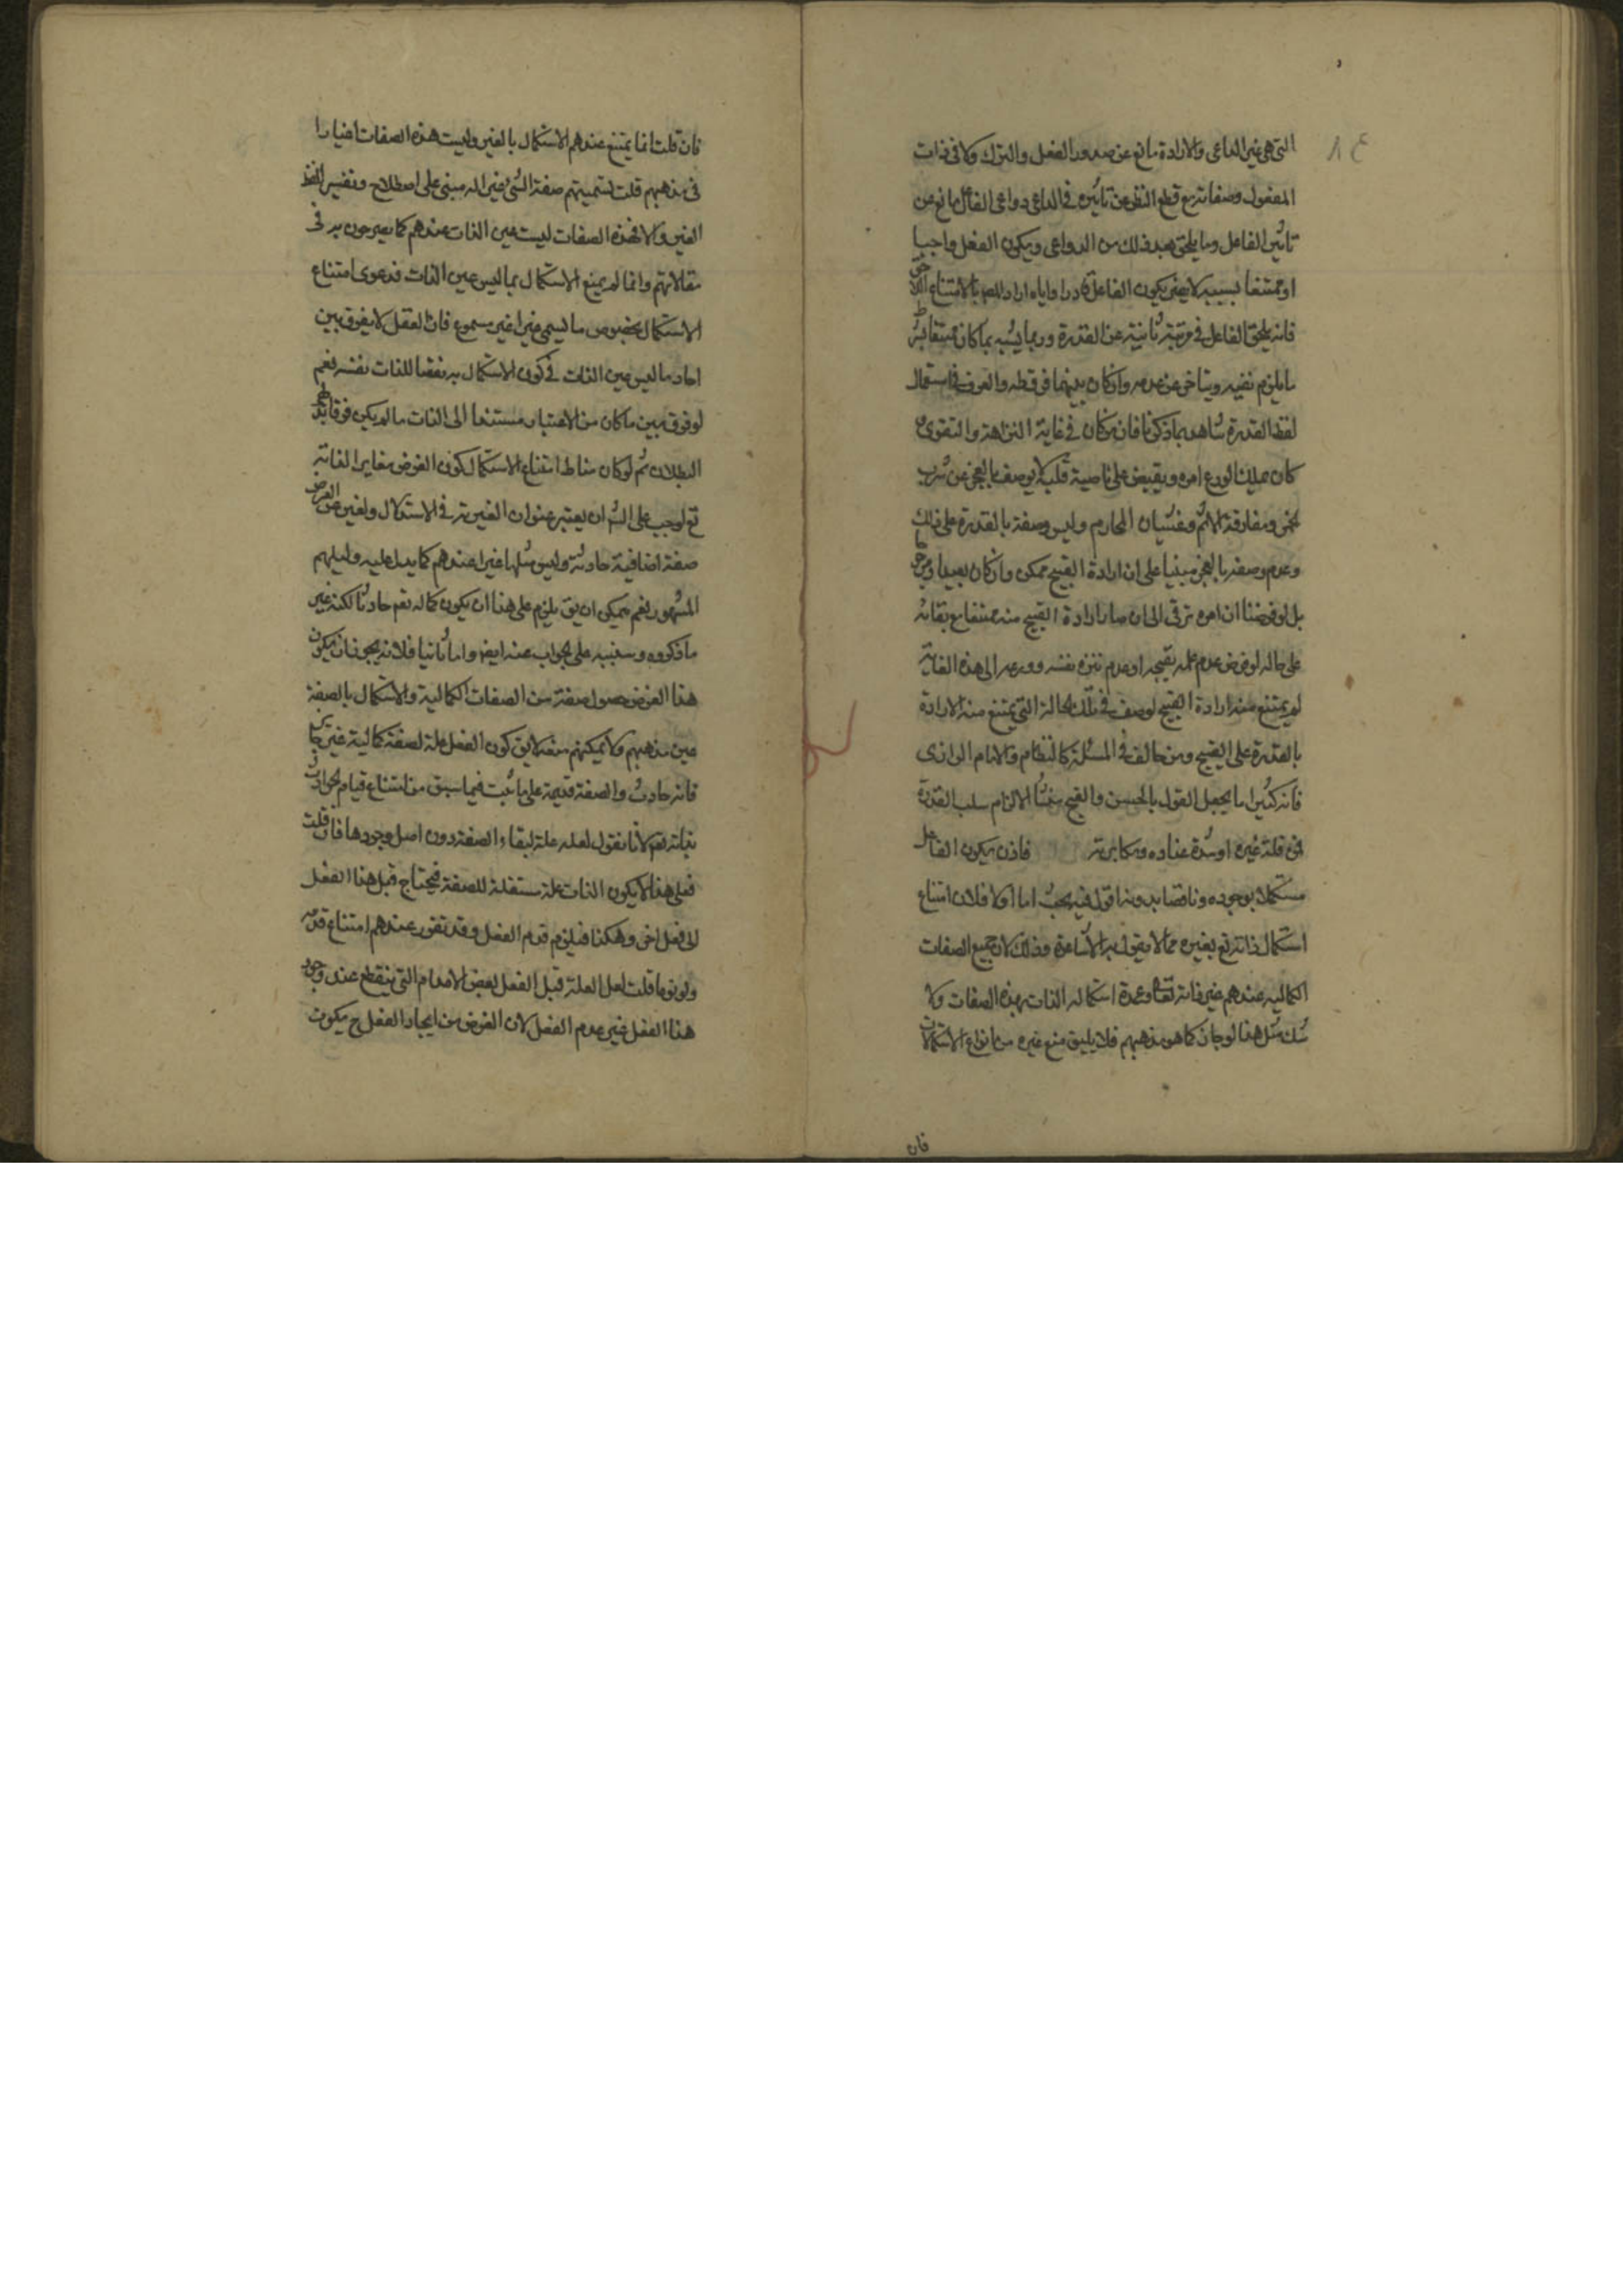 التي هي غير الداعي والارادة مانع عن صدور الفعل والترك ولا في ذات
المفعول وصفاته مع قطع النظر عن تاثيره في الداعي دواعي الفاعل مانع عن
تاثير الفاعل وما يلحق بعد ذلك من الدواعي ويكون الفعل واجبا
او ممتنعا بسببه لا يضر بكون الفاعل قادرا واياه اراد المص بالامتناع اللاحق
فانه يلحق الفاعل في مرتبة ثانية عن القدرة وربما يشبه بما كان ممتنعا بشرط
ما يلزم نفيه ويتاخر عن عدمه وان كان بينهما فرق ظ والعرف في استعمال
لفظ القدرة شاهد بما ذكرنا فان من كان في غاية النزاهة والتقوى و
كان يملك الورع امره ويقبض على ناصية قلبه لا يوصف بالعجز عن شرب
الخمر ومفارقة الاثم وغشيان المحارم وليس وصفه بالقدرة على ذلك
وعدم وصفه بالعجز مبنيا على ان ارادة القبيح ممكن وان كان بعيدا
بل لو فرضنا ان امره ترقى الى ان صار ارادة القبيح منه ممتنعا مع بقائه
على حاله لو فرض عدم علمه بقبحه او عدم تنزه نفسه وورعه الى هذه الغاية
لم يمتنع منه ارادة القبيح لوصف في تلك الحالة التي يمتنع منه الارادة
بالقدرة على القبيح ومن خالف في المسئلة كالنظام والامام الرازى
فانه كثيرا ما يجعل القول بالحسن والقبح منشا لالزام سلب القدرة
فمن قلة غيره او شدة عناده ومكابرته فاذن يكون الفاعل
مستكملا بوجوده وناقصا بدونه اقول فيه بحث اما اولا فلان امتناع
استكمال ذاته تع بغيره مما لا يقول به الاشاعرة وذلك لان جميع الصفات
الكماليه عندهم غير ذاته تعالى وعمدة استكماله الذات بهذه الصفات ولا
شك مثل هذا لو جاز كما هو مذهبهم فلا يليق منع غيره من انواع الاستكمالات
فان
فان قلت انما يمتنع عندهم الاستكمال بالغير وليست هذه الصفات اغيارا
في مذهبهم قلت تسميتهم صفة الشئ غيرا له مبنى على اصطلاح وتفسير للفظ
الغير والا فهذه الصفات ليست عين الذات عندهم كما يصرحون به في
مقالاتهم وانما لم يمنع الاستكمال بما ليس عين الذات فدعوى امتناع
الاستكمال بخصوص ما يسمى غيرا غير مسموع فان العقل لا يفرق بين
احاد ما ليس عين الذات في كون الاستكمال به نقصا للذات نفسه نعم
لو فرق بين ما كان من الاعتبار مستندا الى الذات ما لم يكن فرقا بد
البطلان ثم لو كان مناط امتناع الاستكمال كون الغرض مغايرا لذاته
تع لوجب على الش ان يعتبر عنوان الغيرية في الاستدلال وليس الغرض
صفة اضافية حادثة وليس مثلها غيرا عندهم كما يدل عليه دليلهم
المشهور نعم يمكن ان يق يلزم على هذا ان يكون كماله تعم حادثا لكنه غير
ما ذكروه وسننبه على الجواب عنه ايض واما ثانيا فلانه يجوز ان يكون
هذا الغرض حصول صفة من الصفات الكمالية والاستكمال بالصفة
عين مذهبهم ولا يمكنهم منعه لا يق كون الفعل علة لصفة كمالية غير جائز
فانه حادث والصفة قديمة على ما ثبت فيما سبق من امتناع قيام الحوادث
بذاته تعم لانا نقول لعله علة لبقاء الصفة دون اصل وجودها فان قلت
فعلى هذا لا يكون الذات علة مستقلة للصفة فيحتاج قبل هذا الفعل
الى فعل اخر وهكذا فيلزم قدم الفعل وقد تقرر عندهم امتناع قدمه
ولو نوعا قلت لعل العلة قبل الفعل بعض الاعدام التي ينقطع عند وجود
هذا الفعل غير عدم الفعل لان الغرض من ايجاد الفعل ح يكون